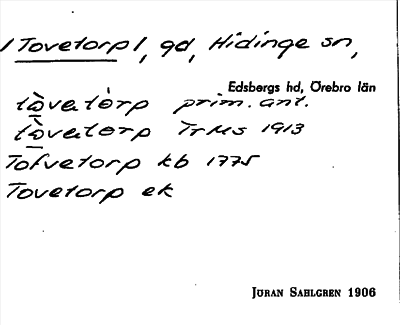 /Tovetorp/, gd, Hidinge sn,
Edsbergs hd, Örebro län
tò̲vetò̀rp prim. ant.
tò̲vetorp TrMs 1913
Tofvetorp kb 1775
Tovetorp ek
JÖRAN SAHLGREN 1906